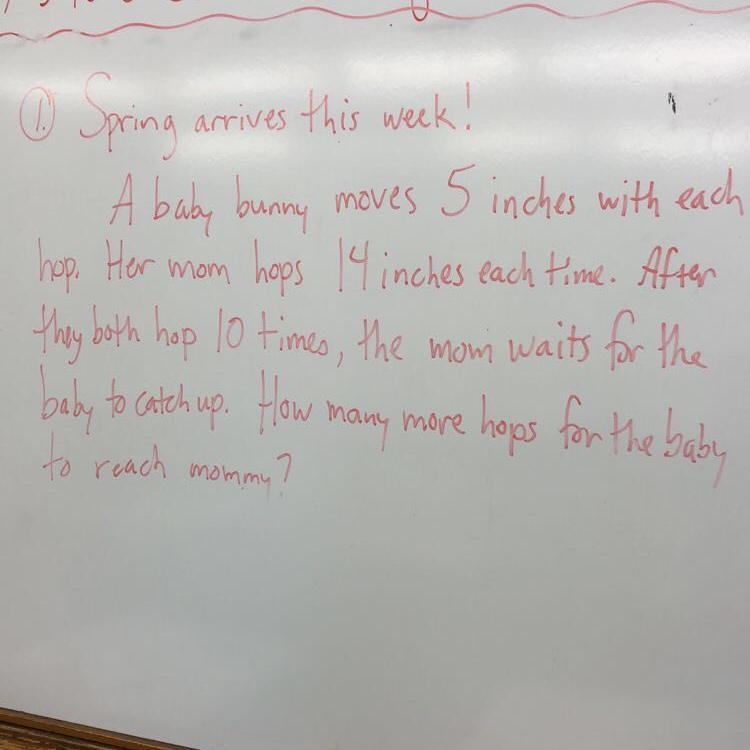 ① Spring arrives this week!
A baby bunny moves 5 inches with each
hop. Her mom hops 14 inches each time. After
they both hop 10 times, the mom waits for the
baby to catch up. How many more hops for the baby
to reach mommy?